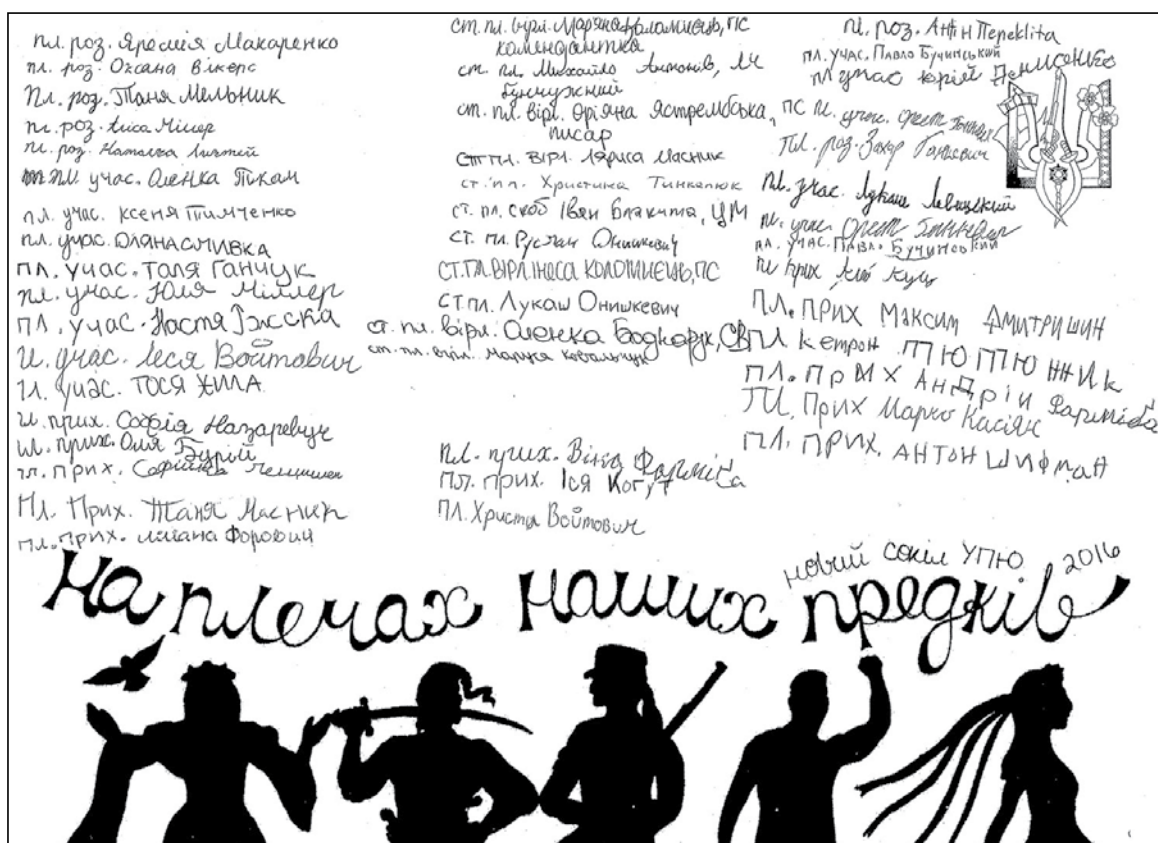 пл. роз. Яремія Макаренко
пл. роз. Оксана Вікерс
пл. роз. Таня Мельник
пл. роз. Ліса Міллер
пл. роз. Наталка
пл учас. Оленка Ткач
пл. учас. Ксеня Тимченко
пл. учас. Оляна Сливка
пл. учас. Таля Ганчук
пл. учас. Юля Міллер
пл. учас. Настя
пл. учас. Леся Войтович
пл. учас. Тося Жила
пл. прих. Софія Назаревич
пл. прих. Оля Бурій
пл. прих. Софійка
Пл. Прих. Таня Масник
пл. прих. Ліляна Форович
ст. пл. вірл. Мар'яна Коломиєць, ПС
комендантка
ст. пл. Михайло Антонів, ЛЧ
бунчужний
ст. пл. вірл. Оріяна Ястрембська, ПС
писар
ст пл. вірл. Лариса Масник
ст. пл. Христина Тинкалюк
ст. пл. скоб Іван Блакита, ЦМ
ст. пл. Руслан Онишкевич
ст. пл. вірл Інеса Коломиєць, ПС
ст пл. Лукаш Онишкевич
ст. пл. вірл. Оленка Боднарук, СВ
ст. пл. вірл. Маруся Ковальчук
пл. прих. Віка Фарміґа
пл. прих. Іся Когут
пл. Христа Войтович
пл. роз. Антін Переkliта
пл. учас. Павло Бучинський
пл учас Юрій Денисенко
пл. учас. Орест
пл. роз. Захар Ганкевич
пл. учас. Лукаш Левицький
пл. учас. Орест
пл. учас. Павло Бучинський
пл прих
пл. прих Максим Дмитришин
пл Кетрон Тютюнжик
пл. прих Андрій Фарміґа
пл. прих Марко Касіян
пл. прих. Антон Шифман
новий сокіл УПЮ 2016
на плечах наших предків